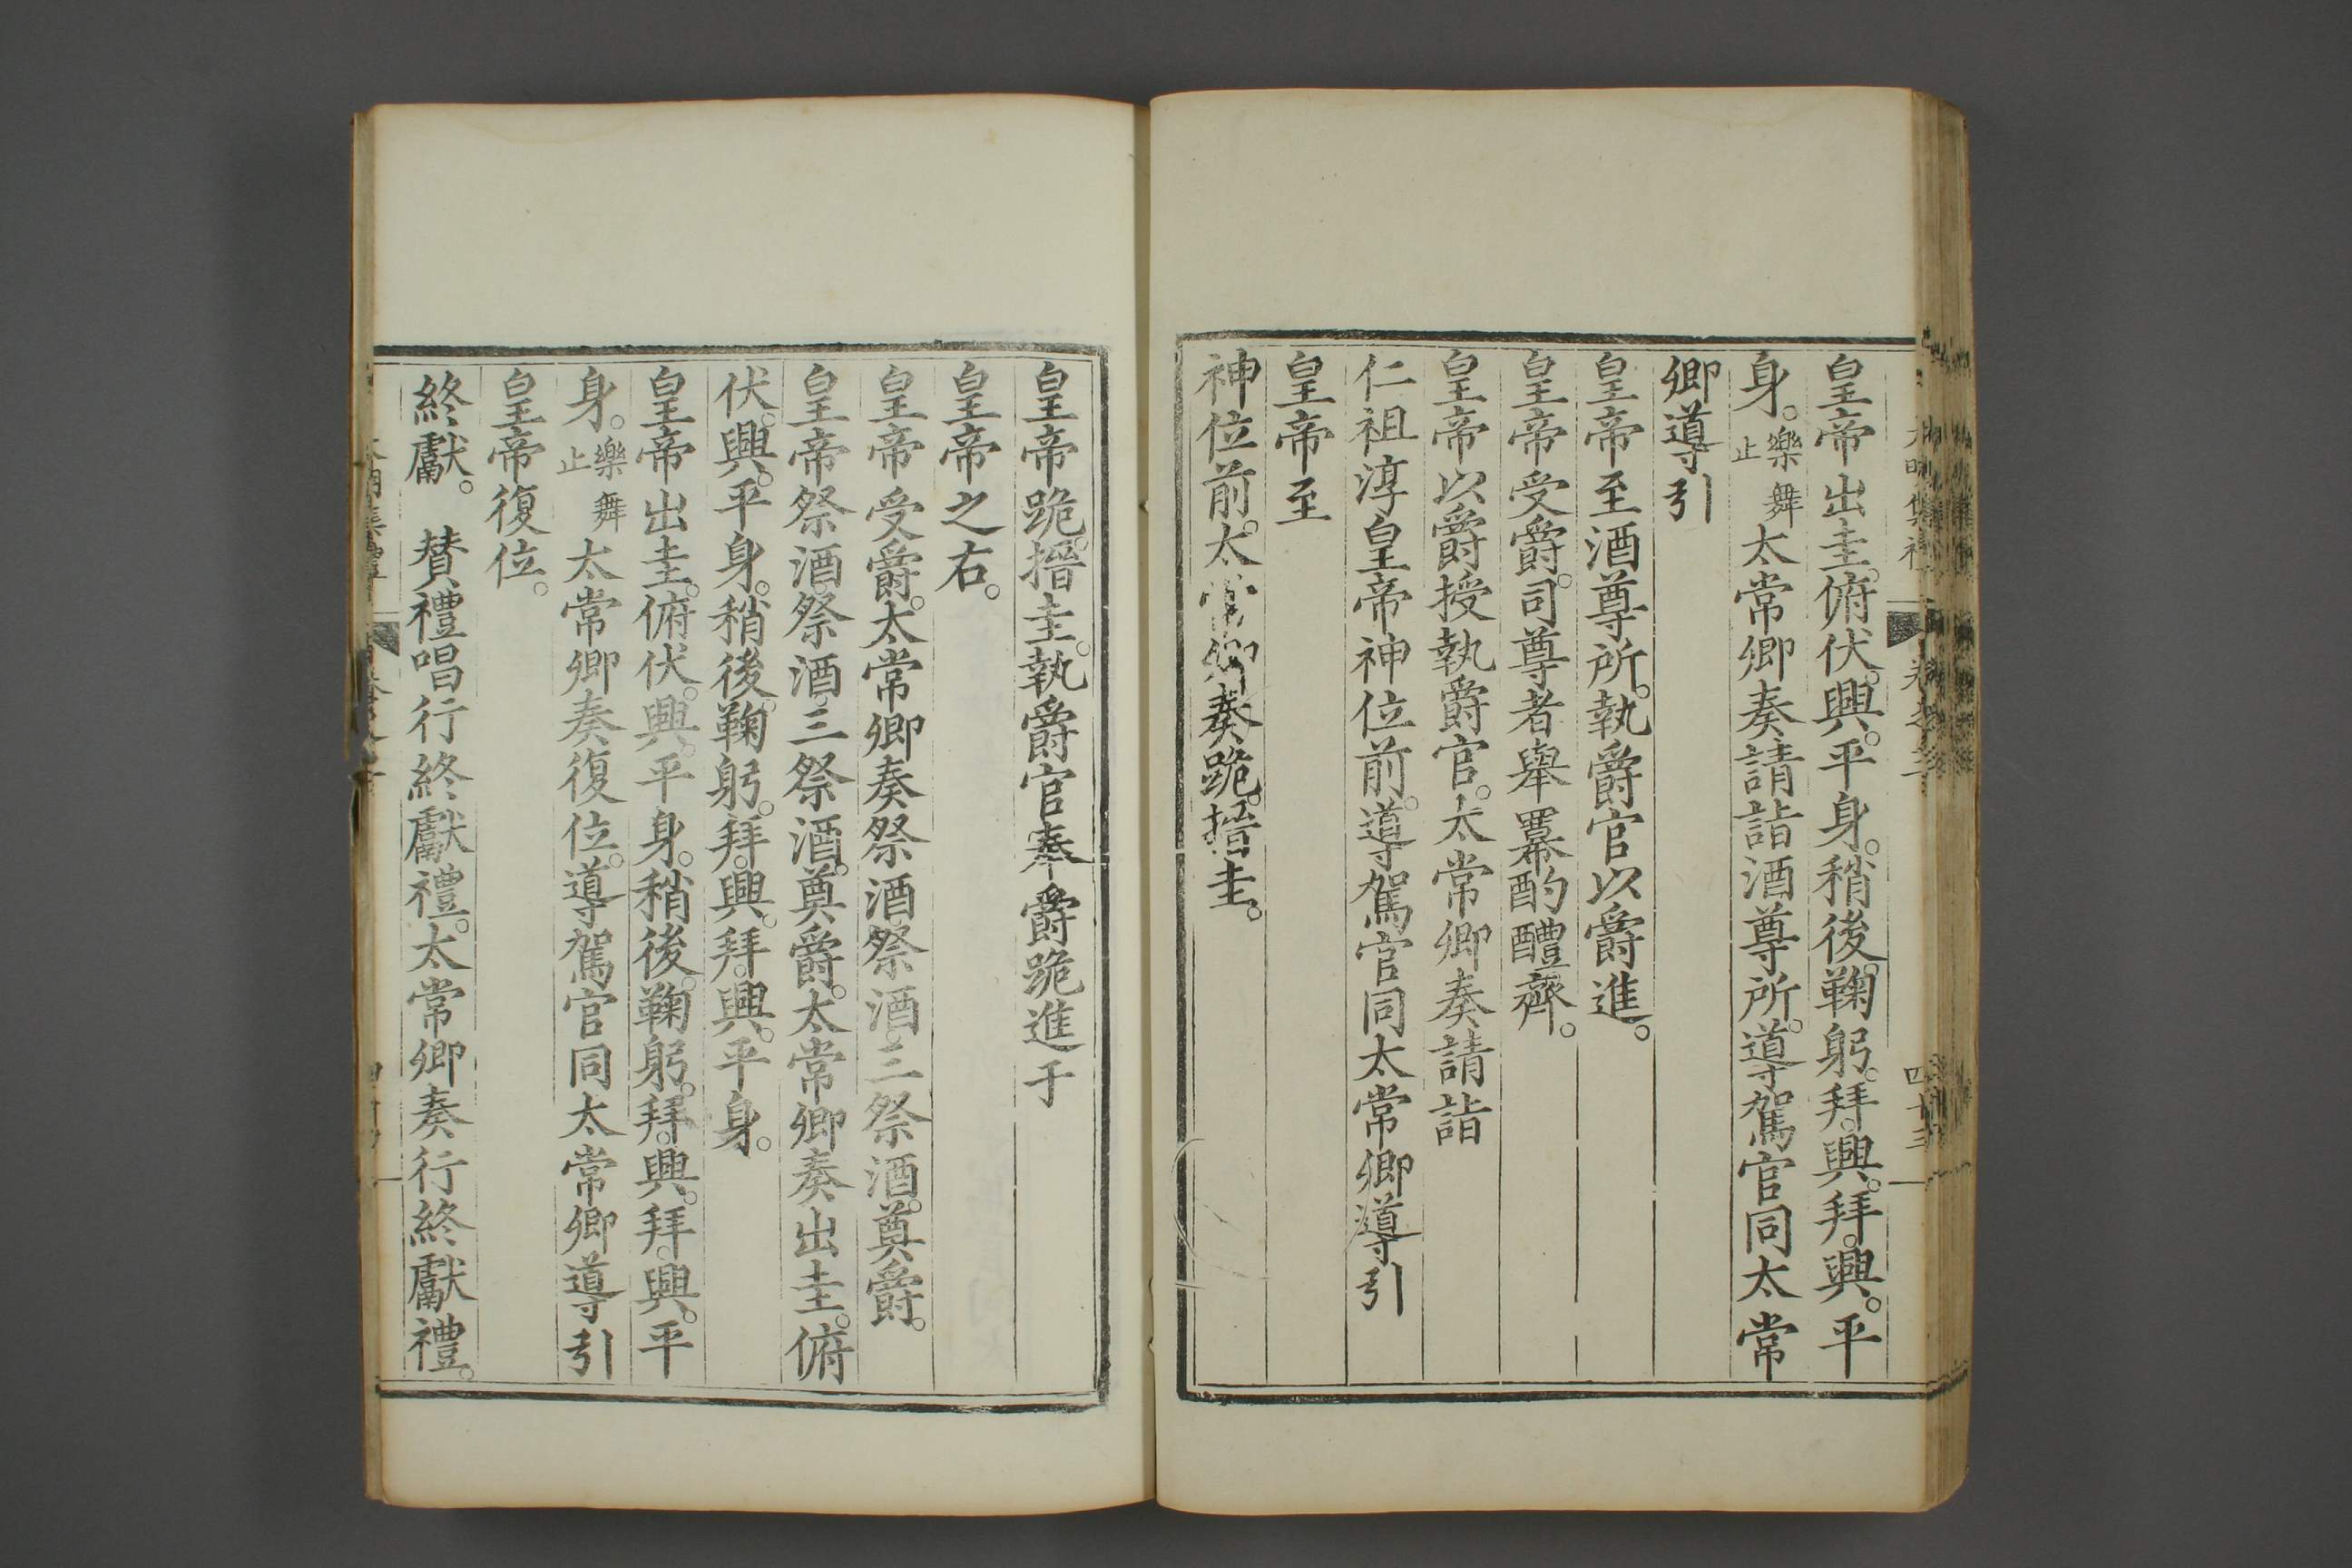 皇帝出圭。俯伏。興。平身。稍後。鞠躬。拜。興。拜。興。平
身。樂舞止太常卿奏請詣酒尊所。導駕官同太常
卿導引
皇帝至酒尊所。執爵官以爵進。
皇帝受爵。司尊者舉羃酌醴齊。
皇帝以爵授執爵官。太常卿奏請詣
仁祖淳皇帝神位前。導駕官同太常卿導引
皇帝至
神位前。太常卿奏跪。搢圭。
皇帝跪。搢圭。執爵官奉爵跪進于
皇帝之右。
皇帝受爵。太常卿奏祭酒。祭酒。三祭酒。奠爵。
皇帝祭酒。祭酒。三祭酒。奠爵。太常卿奏出圭。俯
伏。興。平身。稍後。鞠躬。拜。興。拜。興。平身。
皇帝出圭。俯伏。興。平身。稍後。鞠躬。拜。興。拜。興。平
身。樂舞止太常卿奏復位。導駕官同太常卿導引
皇帝復位。
終獻。　賛禮唱行終獻禮。太常卿奏行終獻禮。